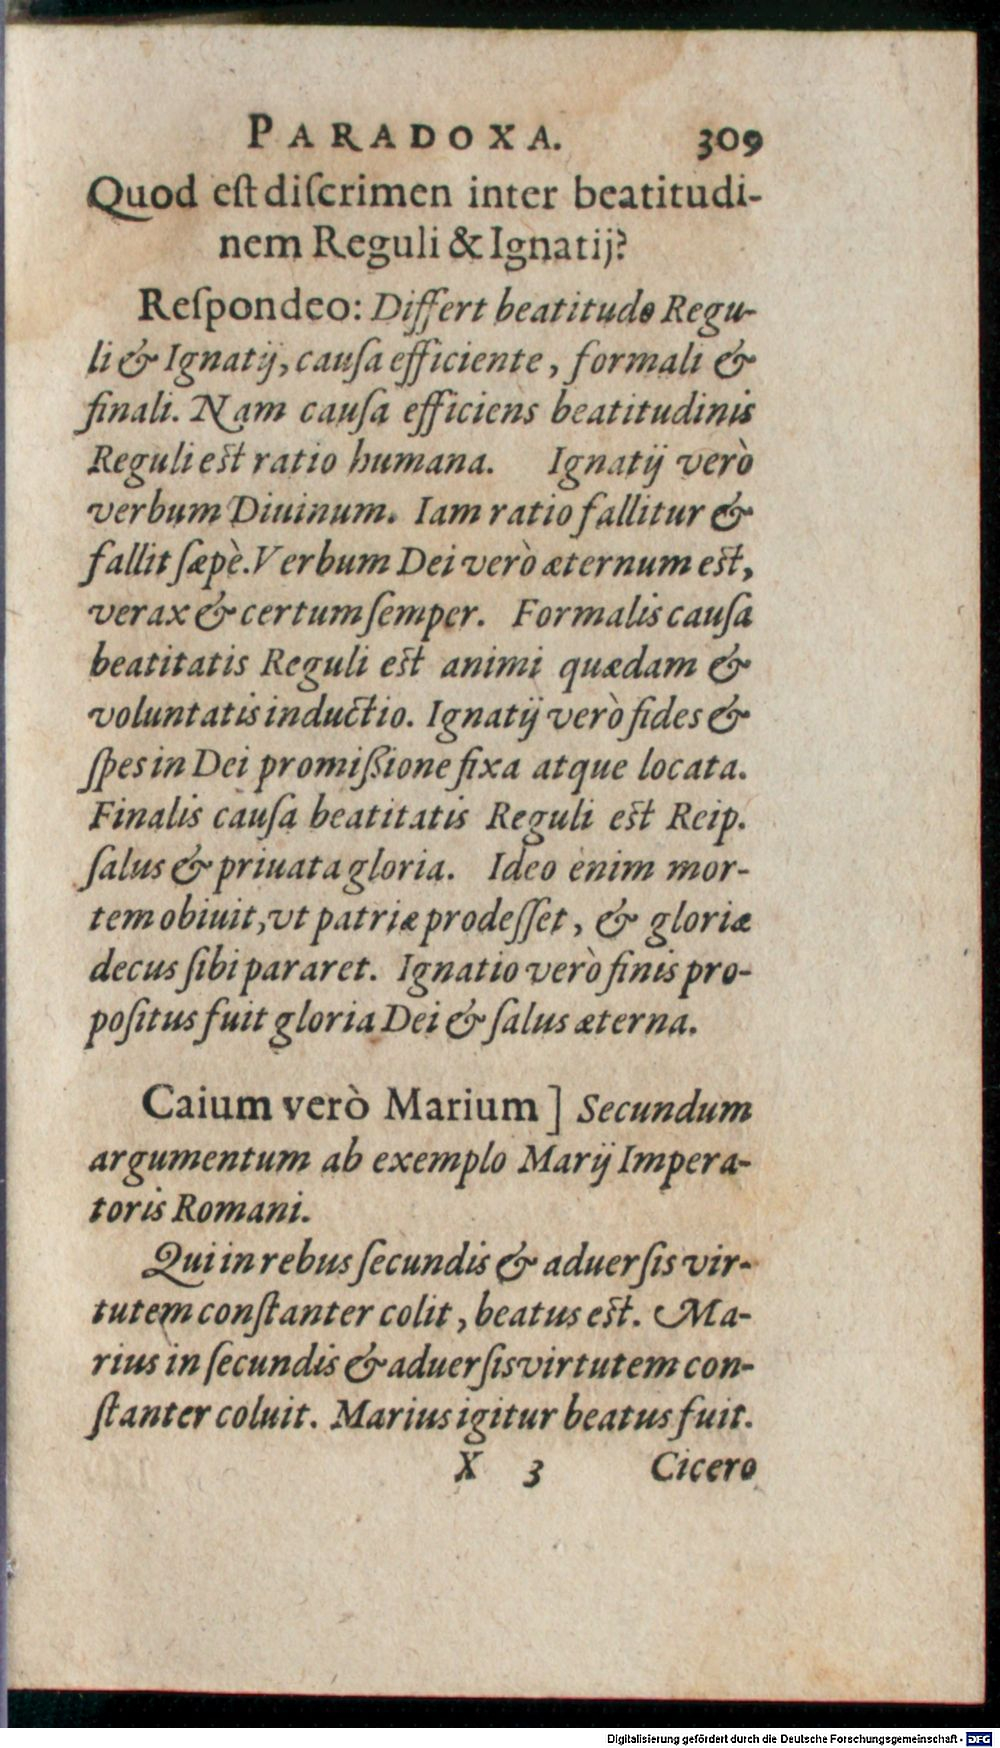 PARADOXA. 309
Quod eſt diſcrimen inter beatitudi-
nem Reguli & Ignatij?
Reſpondeo: Differt beatitudo Regu-
li & Ignatij, cauſa efficiente, formali &
finali. Nam cauſa efficiens beatitudinis
Reguli eſt ratio humana. Ignatij verò
verbum Diuinum. Iam ratio fallitur &
fallit ſæpè. Verbum Dei verò æternum eſt,
verax & certum ſemper. Formalis cauſa
beatitatis Reguli eſt animi quædam &
voluntatis inductio. Ignatij verò fides &
ſpes in Dei promißione fixa atque locata.
Finalis cauſa beatitatis Reguli eſt Reip.
ſalus & priuata gloria. Ideo enim mor-
tem obiuit, vt patriæ prodeſſet, & gloriæ
decus ſibi pararet. Ignatio verò finis pro-
poſitus fuit gloria Dei & ſalus æterna.
Caium verò Marium ] Secundum
argumentum ab exemplo Marij Impera-
toris Romani.
Qui in rebus ſecundis & aduerſis vir-
tutem conſtanter colit, beatus eſt. Ma-
rius in ſecundis & aduerſis virtutem con-
ſtanter coluit. Marius igitur beatus fuit.
X 3 Cicero
Digitalisierung gefördert durch die Deutsche Forschungsgemeinschaft - DFG